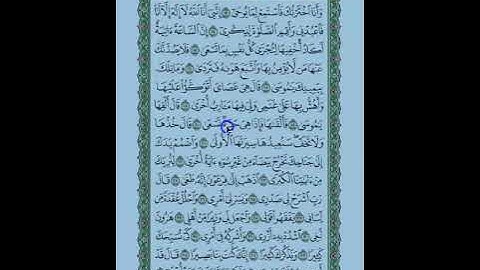 وَأَنَا ٱخْتَرْتُكَ فَٱسْتَمِعْ لِمَا يُوحَىٰٓ ۝ إِنَّنِىٓ أَنَا ٱللَّهُ لَآ إِلَٰهَ إِلَّآ أَنَا۠
فَٱعْبُدْنِى وَأَقِمِ ٱلصَّلَوٰةَ لِذِكْرِىٓ ۝ إِنَّ ٱلسَّاعَةَ ءَاتِيَةٌ
أَكَادُ أُخْفِيهَا لِتُجْزَىٰ كُلُّ نَفْسٍۭ بِمَا تَسْعَىٰ ۝ فَلَا يَصُدَّنَّكَ
عَنْهَا مَن لَّا يُؤْمِنُ بِهَا وَٱتَّبَعَ هَوَىٰهُ فَتَرْدَىٰ ۝ وَمَا تِلْكَ
بِيَمِينِكَ يَٰمُوسَىٰ ۝ قَالَ هِىَ عَصَاىَ أَتَوَكَّؤُا۟ عَلَيْهَا
وَأَهُشُّ بِهَا عَلَىٰ غَنَمِى وَلِىَ فِيهَا مَـَٔارِبُ أُخْرَىٰ ۝ قَالَ أَلْقِهَا
يَٰمُوسَىٰ ۝ فَأَلْقَىٰهَا فَإِذَا هِىَ حَيَّةٌ تَسْعَىٰ ۝ قَالَ خُذْهَا
وَلَا تَخَفْ سَنُعِيدُهَا سِيرَتَهَا ٱلْأُولَىٰ ۝ وَٱضْمُمْ يَدَكَ
إِلَىٰ جَنَاحِكَ تَخْرُجْ بَيْضَآءَ مِنْ غَيْرِ سُوٓءٍ ءَايَةً أُخْرَىٰ ۝ لِنُرِيَكَ
مِنْ ءَايَٰتِنَا ٱلْكُبْرَى ۝ ٱذْهَبْ إِلَىٰ فِرْعَوْنَ إِنَّهُۥ طَغَىٰ ۝ قَالَ
رَبِّ ٱشْرَحْ لِى صَدْرِى ۝ وَيَسِّرْ لِىٓ أَمْرِى ۝ وَٱحْلُلْ عُقْدَةً مِّن
لِّسَانِى ۝ يَفْقَهُوا۟ قَوْلِى ۝ وَٱجْعَل لِّى وَزِيرًا مِّنْ أَهْلِى ۝ هَٰرُونَ
أَخِى ۝ ٱشْدُدْ بِهِۦٓ أَزْرِى ۝ وَأَشْرِكْهُ فِىٓ أَمْرِى ۝ كَىْ نُسَبِّحَكَ
كَثِيرًا ۝ وَنَذْكُرَكَ كَثِيرًا ۝ إِنَّكَ كُنتَ بِنَا بَصِيرًا ۝ قَالَ قَدْ